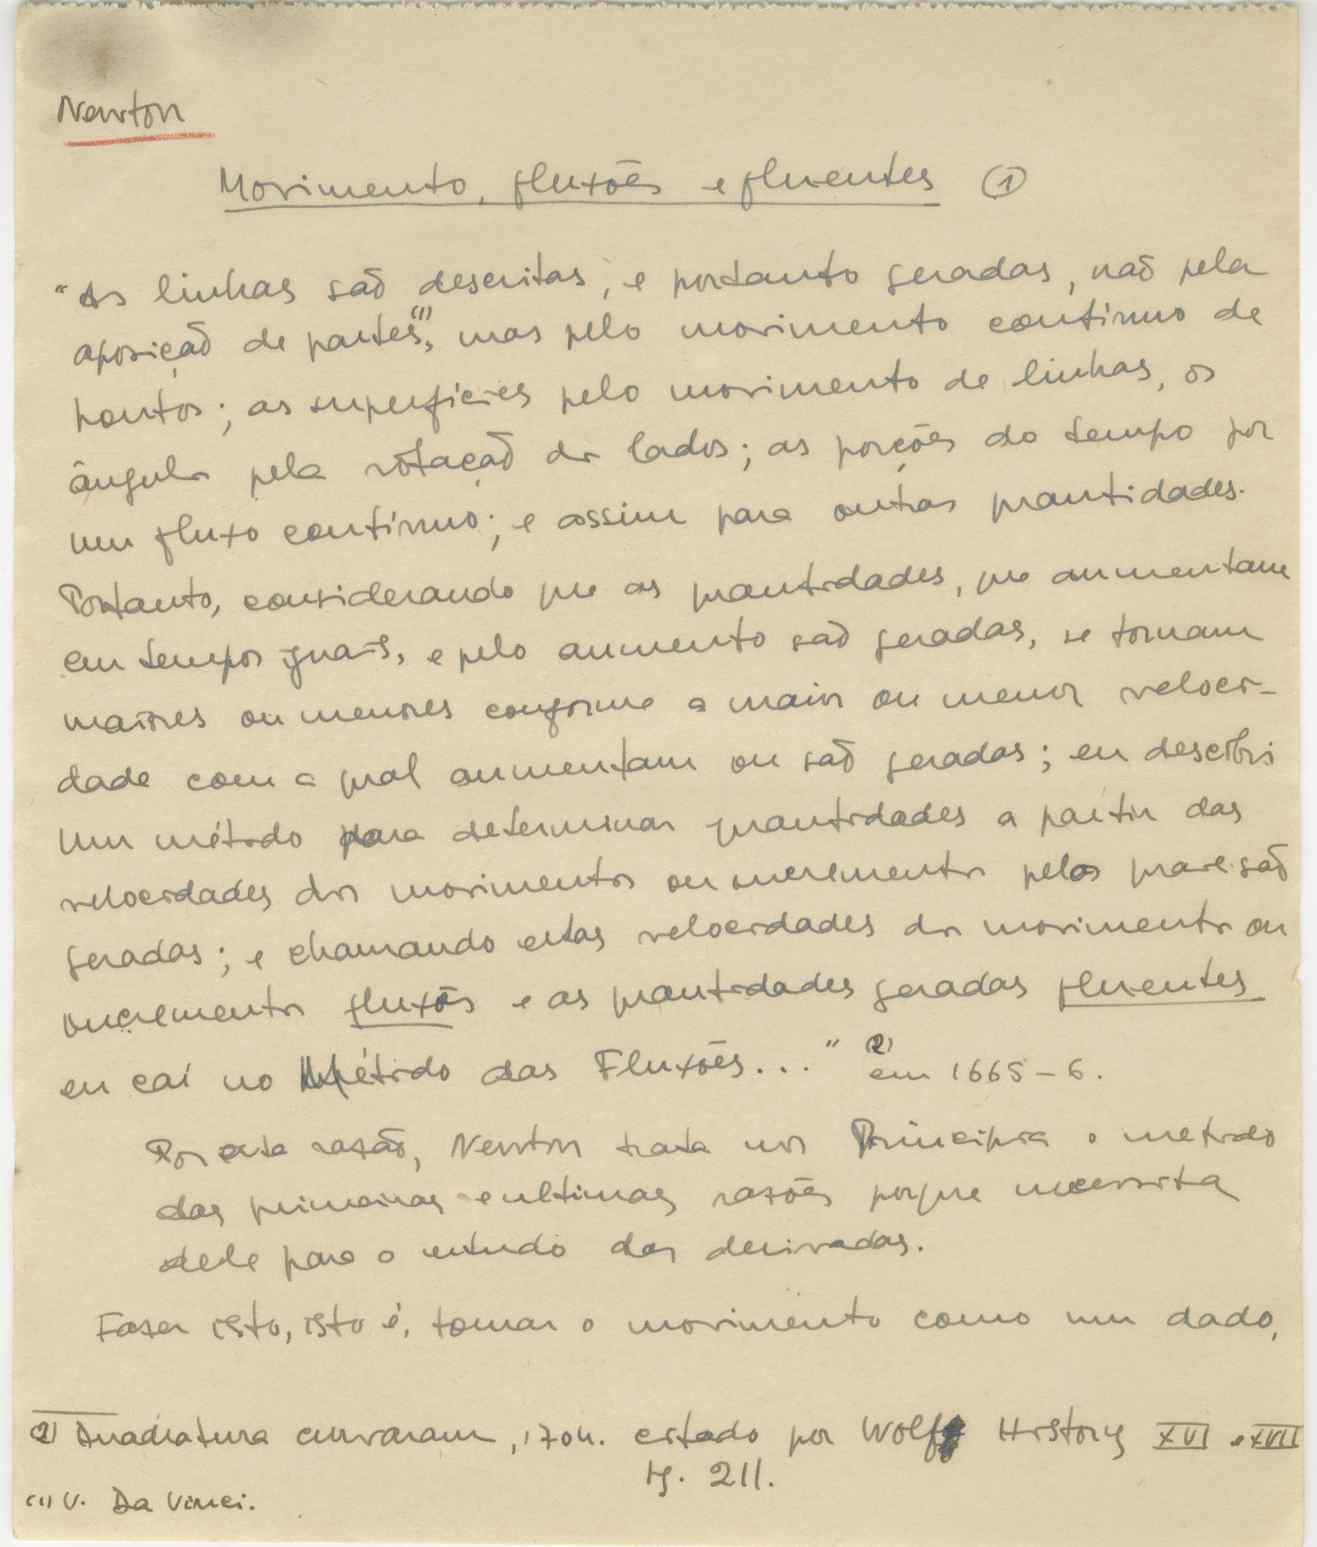 Newton
Movimento, fluxões e fluentes ①
"As linhas são descritas, e portanto geradas, não pela
aposição de partes(1), mas pelo movimento contínuo de
pontos; as superfícies pelo movimento de linhas, os
ângulos pela rotação dos lados; as porções do tempo por
um fluxo contínuo; e assim para outras quantidades.
Portanto, considerando que as quantidades, que aumentam
em tempos iguais, e pelo aumento são geradas, se tornam
maiores ou menores conforme a maior ou menor veloci-
dade com a qual aumentam ou são geradas; eu descobri
um método para determinar quantidades a partir das
velocidades dos movimentos ou incrementos pelos quais são
geradas; e chamando estas velocidades dos movimentos ou
incrementos fluxões e as quantidades geradas fluentes
eu caí no Método das Fluxões..." (2) em 1665-6.
Por esta razão, Newton trata nos Principia o metodo
das primeiras e ultimas razões porque necessita
dele para o estudo das derivadas.
Fazer isto, isto é, tomar o movimento como um dado,
(2) Quadratura curvaram, 1704. citado por Wolf History XVI e XVII
Pg. 211.
(1) V. Da Vinci.